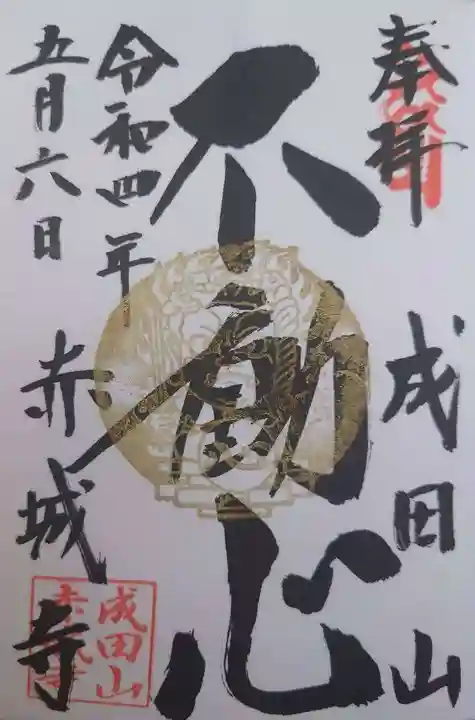 奉拝
成田山
不動心
令和四年
五月六日
赤城寺
成田山
赤城寺